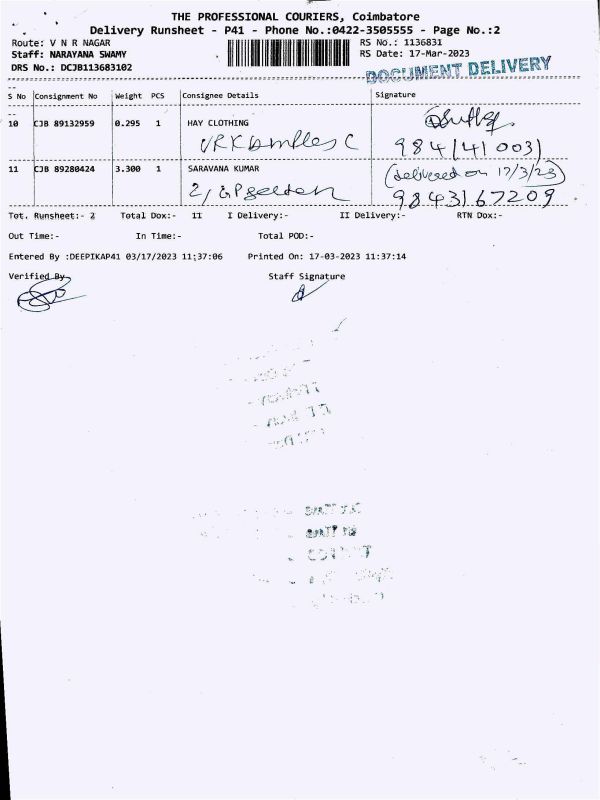 THE PROFESSIONAL COURIERS, Coimbatore
Delivery Runsheet - P41 - Phone No.:0422-3505555 - Page No.:2
Route: V N R NAGAR RS No.: 1136831
Staff: NARAYANA SWAMY RS Date: 17-Mar-2023
DRS No.: DCJB113683102 DOCUMENT DELIVERY
S No Consignment No Weight PCS Consignee Details Signature
10 CJB 89132959 0.295 1 HAY CLOTHING
VRK
11 CJB 89280424 3.300 1 SARAVANA KUMAR (delivered on 17/3/23)
2, GP 9843167209
Tot. Runsheet:- 2 Total Dox:- 11 I Delivery:- II Delivery:- RTN Dox:-
Out Time:- In Time:- Total POD:-
Entered By :DEEPIKAP41 03/17/2023 11:37:06 Printed On: 17-03-2023 11:37:14
Verified By Staff Signature